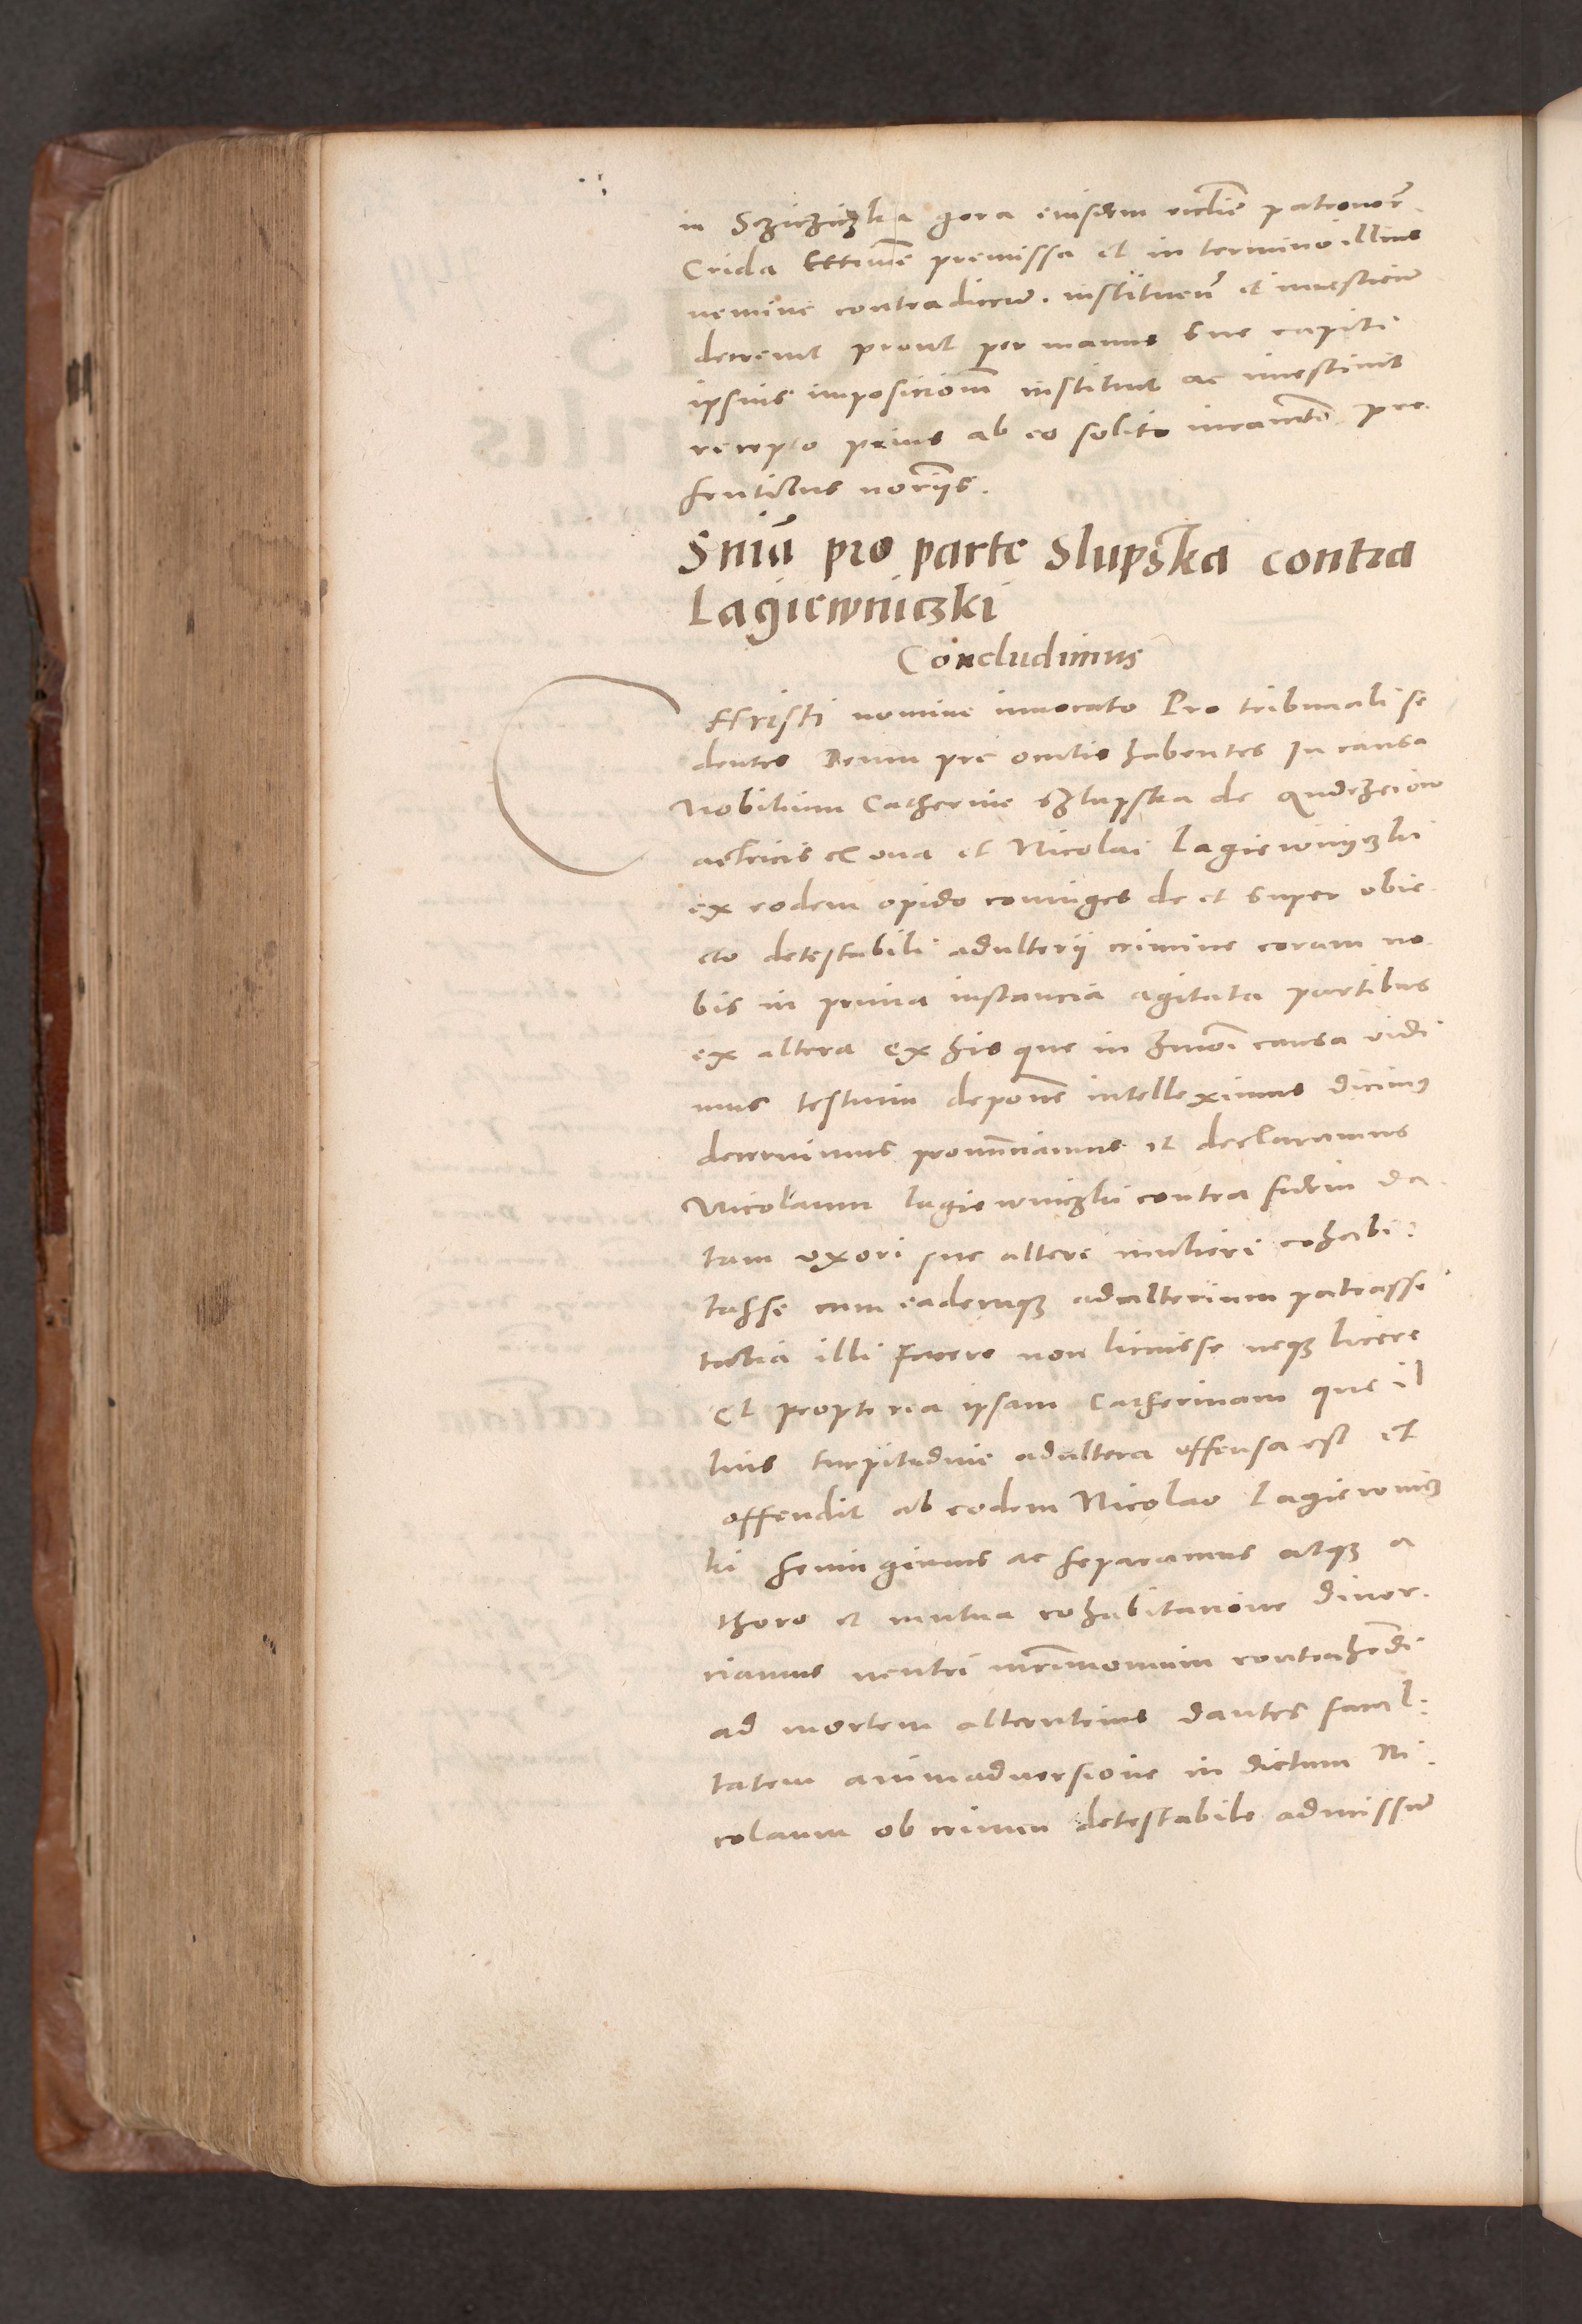 in Sczieziczka gora eiusdem ecclie patronor
Crida premissa et in termino illius
nemine contradiccn. instituen et inuestien
decreuit prout per manus sue capiti
ipsius imposicionem instituit ac inuestiuit
recepto prius ab eo solito iuramto pre
sentibus noriis.
Snia pro parte Slupska contra
Lagiewniczki
Concludimus
Christi nomine inuocato Pro tribunali se
dentes Deum pre oculis habentes In causa
Nobilium Catherine Szlupska de
actricis ex vna et Nicolai Lagiewniczki
ex eodem opido coniuges de et super obie
cto detestabili adulterii crimine coram no
bis in prima instancia agitata partibus
ex altera ex his que in hmoi causa vidi
mus testium depone intelleximus dicimus
decernimus pronunciamus et declaramus
Nicolaum Lagiewniczki contra fidem da
tam vxori sue altere mulieri cohabi
tasse cum eademque adulterium patrasse
talia illi facere non licuisse neque licere
Et propterea ipsam Catherinam que il
lius turpitudine adultera offensa est et
offendit ab eodem Nicolao Lagiewnicz
ki seiungimus ac separamus atque a
thoro et mutua cohabitatione diuor
ciamus neutri mrimonium contrahendi
ad mortem alterutrius dantes facul
tatem animaduersione in dictum Ni
colaum ob crimen detestabile admissum